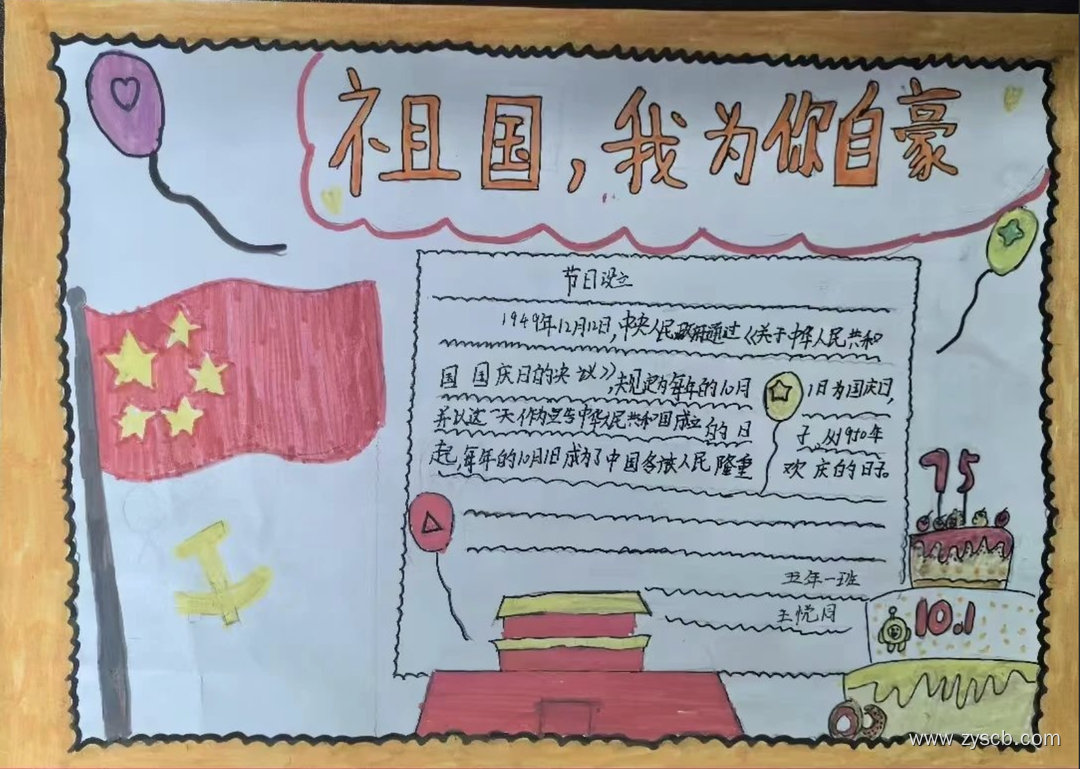 祖国,我为你自豪
节日设立
1949年12月12日,中央人民政府通过《关于中华人民共和
国国庆日的决议》,规定为每年的10月1日为国庆日,
并以这一天作为宣告中华人民共和国成立的日子。从1950年
起,每年的10月1日成为了中国各族人民隆重欢庆的日子。
75
五年一班
10.1
王悦月
www.zyscb.com